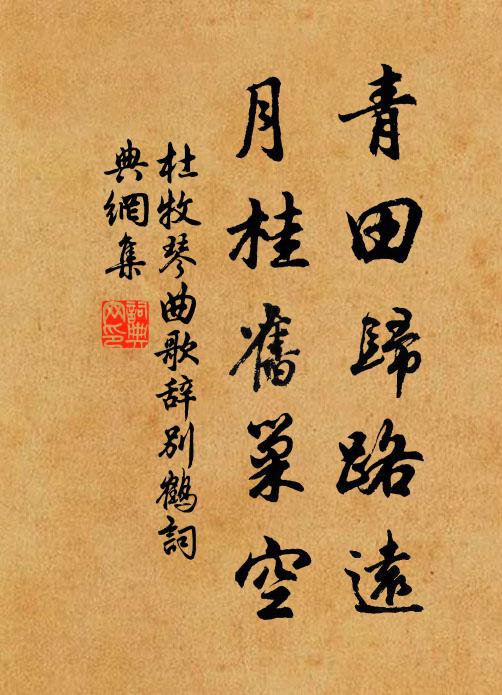 青田歸路遠
月桂舊巢空
杜牧琴曲歌辞别鶴詞
典網集
詞典
网印